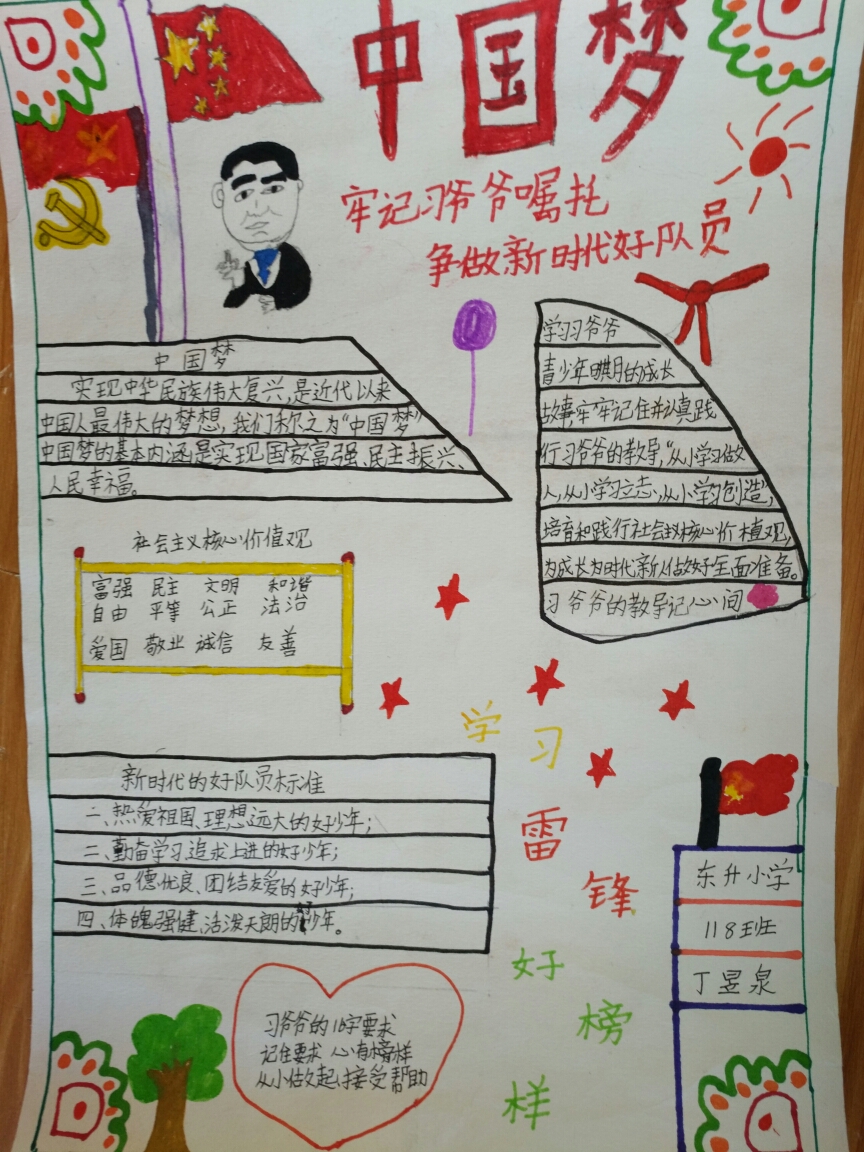 中国梦
牢记习爷爷嘱托
争做新时代好队员
中国梦
实现中华民族伟大复兴,是近代以来
中国人最伟大的梦想,我们称之为“中国梦”
中国梦的基本内涵是实现国家富强、民主振兴、
人民幸福。
学习习爷爷
青少年时期的成长
故事,牢牢记住并认真践
行习爷爷的教导,“从小学习做
人,从小学习立志,从小学习创造”,
培育和践行社会主义核心价植观,
为成长为时代新人估好全面准备。
习爷爷的教导记心间
社会主义核心价值观
富强 民主 文明 和谐
自由 平等 公正 法治
爱国 敬业 诚信 友善
新时代的好队员标准
二、热爱祖国、理想远大的好少年;
二、勤奋学习、追求上进的好少年;
三、品德优良、团结友爱的好少年;
四、体魄强健、活泼天朗的好少年。
学习雷锋好榜样
东升小学
118班
丁昱泉
习爷爷的16字要求
记住要求 心有榜样
从小做起 接受帮助